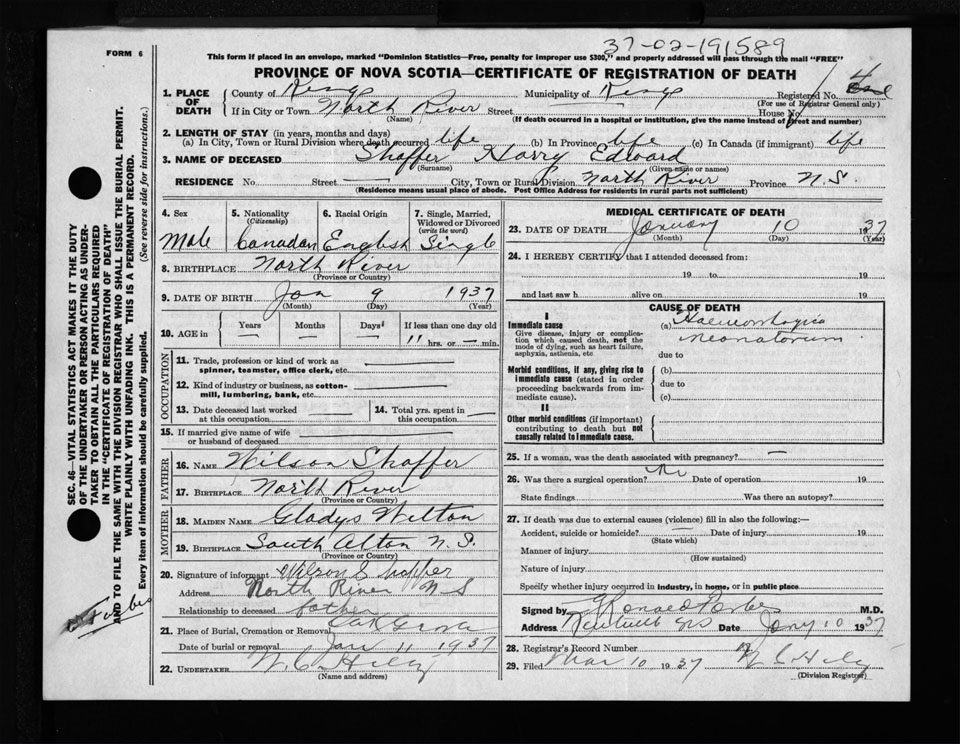 FORM 6
37-02-191589
This form if placed in an envelope, marked "Dominion Statistics—Free, penalty for improper use $300," and properly addressed will pass through the mail "FREE"
PROVINCE OF NOVA SCOTIA—CERTIFICATE OF REGISTRATION OF DEATH
1. PLACE OF DEATH
County of Kings Municipality of Kings Registered No.
(For use of Registrar General only)
If in City or Town North River Street House No.
(Name) (If death occurred in a hospital or institution, give the name instead of street and number)
2. LENGTH OF STAY (in years, months and days)
(a) In City, Town or Rural Division where death occurred life (b) In Province life (c) In Canada (if immigrant) life
3. NAME OF DECEASED Shaffer Harry Edward
(Surname) (Given name or names)
RESIDENCE No. Street City, Town or Rural Division North River Province N.S.
(Residence means usual place of abode. Post Office Address for residents in rural parts not sufficient)
SEC. 46—VITAL STATISTICS ACT MAKES IT THE DUTY
OF THE UNDERTAKER OR PERSON ACTING AS UNDER-
TAKER TO OBTAIN ALL THE PARTICULARS REQUIRED
IN THE "CERTIFICATE OF REGISTRATION OF DEATH"
AND TO FILE THE SAME WITH THE DIVISION REGISTRAR WHO SHALL ISSUE THE BURIAL PERMIT.
WRITE PLAINLY WITH UNFADING INK. THIS IS A PERMANENT RECORD.
Every item of information should be carefully supplied. (See reverse side for instructions.)
4. Sex 5. Nationality (Citizenship) 6. Racial Origin 7. Single, Married, Widowed or Divorced (write the word)
Male Canadian English Single
8. BIRTHPLACE North River
(Province or Country)
9. DATE OF BIRTH Jan 9 1937
(Month) (Day) (Year)
10. AGE in Years Months Days If less than one day old
— — — 11 hrs. or — min.
OCCUPATION
11. Trade, profession or kind of work as
spinner, teamster, office clerk, etc. —
12. Kind of industry or business, as cotton-
mill, lumbering, bank, etc. —
13. Date deceased last worked at this occupation — 14. Total yrs. spent in this occupation —
15. If married give name of wife
or husband of deceased —
FATHER
16. NAME Wilson Shaffer
17. BIRTHPLACE North River
(Province or Country)
MOTHER
18. MAIDEN NAME Gladys Welton
19. BIRTHPLACE South Alton N.S.
(Province or Country)
20. Signature of informant Wilson Shaffer
Address North River N S
Relationship to deceased father
21. Place of Burial, Cremation or Removal Oak Grove
Date of burial or removal Jan 11 1937
22. UNDERTAKER
(Name and address)
MEDICAL CERTIFICATE OF DEATH
23. DATE OF DEATH January 10 1937
(Month) (Day) (Year)
24. I HEREBY CERTIFY that I attended deceased from:
19 to 19
and last saw h alive on 19
CAUSE OF DEATH
I
Immediate cause
Give disease, injury or complica-
tion which caused death, not the
mode of dying, such as heart failure,
asphyxia, asthenia, etc
(a)
neonatorum
due to
Morbid conditions, if any, giving rise to
immediate cause (stated in order
proceeding backwards from im-
mediate cause).
(b)
due to
(c)
II
Other morbid conditions (if important)
contributing to death but not
causally related to immediate cause.
25. If a woman, was the death associated with pregnancy? —
26. Was there a surgical operation? No Date of operation 19
State findings Was there an autopsy?
27. If death was due to external causes (violence) fill in also the following:—
Accident, suicide or homicide? Date of injury 19
(State which)
Manner of injury
(How sustained)
Nature of injury
Specify whether injury occurred in industry, in home, or in public place
Signed by M.D.
Address Kentville NS Date Jany 10 1937
28. Registrar's Record Number
29. Filed Mar 10 1937
(Division Registrar)